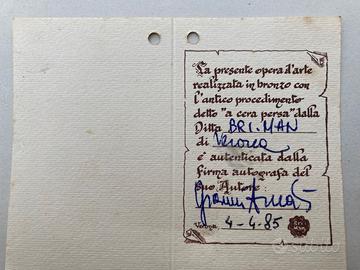 La presente opera d'arte
realizzata in bronzo con
l'antico procedimento
detto "a cera persa" dalla
Ditta BRI.MAN
di Verona
è autenticata dalla
firma autografa del
suo Autore:
Gianni
Verona 4-4-85
subito.it